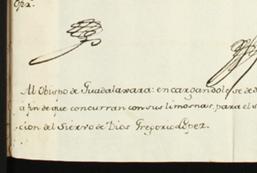 Opx.
Al Obispo de Guadalaxara: encargandole se de
a fin de que concurran con sus limosnas, para el
cion del Siervo de Dios Gregorio López.